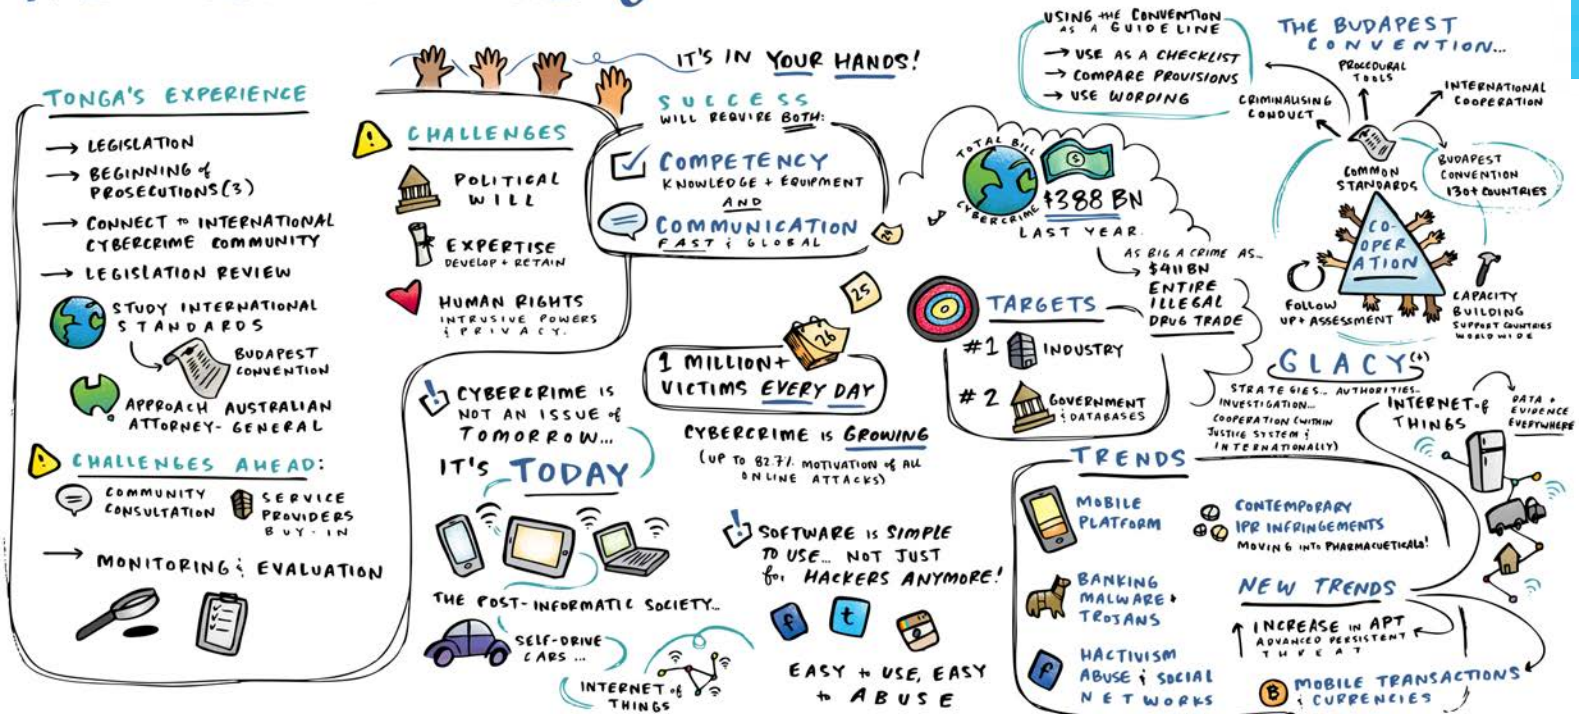 TONGA'S EXPERIENCE
→ LEGISLATION
→ BEGINNING of
PROSECUTIONS (3)
→ CONNECT to INTERNATIONAL
CYBERCRIME COMMUNITY
→ LEGISLATION REVIEW
STUDY INTERNATIONAL
STANDARDS
BUDAPEST
CONVENTION
APPROACH AUSTRALIAN
ATTORNEY-GENERAL
CHALLENGES AHEAD:
COMMUNITY
CONSULTATION
SERVICE
PROVIDERS
BUY-IN
→ MONITORING & EVALUATION
IT'S IN YOUR HANDS!
CHALLENGES
POLITICAL
WILL
EXPERTISE
DEVELOP + RETAIN
HUMAN RIGHTS
INTRUSIVE POWERS
& PRIVACY.
SUCCESS
WILL REQUIRE BOTH:
COMPETENCY
KNOWLEDGE + EQUIPMENT
AND
COMMUNICATION
FAST & GLOBAL
! CYBERCRIME IS
NOT AN ISSUE of
TOMORROW...
IT'S TODAY
THE POST-INFORMATIC SOCIETY...
SELF-DRIVE
CARS...
INTERNET of
THINGS
24
25
26
1 MILLION+
VICTIMS EVERY DAY
CYBERCRIME IS GROWING
(UP TO 82.7% MOTIVATION of ALL
ONLINE ATTACKS)
! SOFTWARE IS SIMPLE
TO USE... NOT JUST
for HACKERS ANYMORE!
f
t
EASY to USE, EASY
to ABUSE
TOTAL BILL
CYBERCRIME
$
$388 BN
LAST YEAR.
AS BIG A CRIME AS...
$411 BN
ENTIRE
ILLEGAL
DRUG TRADE
TARGETS
#1 INDUSTRY
#2 GOVERNMENT
& DATABASES
USING the CONVENTION
AS A GUIDELINE
→ USE AS A CHECKLIST
→ COMPARE PROVISIONS
→ USE WORDING
THE BUDAPEST
CONVENTION...
PROCEDURAL
TOOLS
INTERNATIONAL
COOPERATION
CRIMINALISING
CONDUCT
COMMON
STANDARDS
BUDAPEST
CONVENTION
130+ COUNTRIES
CO-
OPER
ATION
FOLLOW
UP + ASSESSMENT
CAPACITY
BUILDING
SUPPORT COUNTRIES
WORLDWIDE
GLACY (+)
STRATEGIES... AUTHORITIES...
INVESTIGATION...
COOPERATION (WITHIN
JUSTICE SYSTEM &
INTERNATIONALLY)
INTERNET of
THINGS
DATA +
EVIDENCE
EVERYWHERE
TRENDS
MOBILE
PLATFORM
BANKING
MALWARE +
TROJANS
f
HACTIVISM
ABUSE & SOCIAL
NETWORKS
CONTEMPORARY
IPR INFRINGEMENTS
MOVING INTO PHARMACUETICALS!
NEW TRENDS
↑ INCREASE IN APT
ADVANCED PERSISTENT
THREAT
B MOBILE TRANSACTIONS
& CURRENCIES